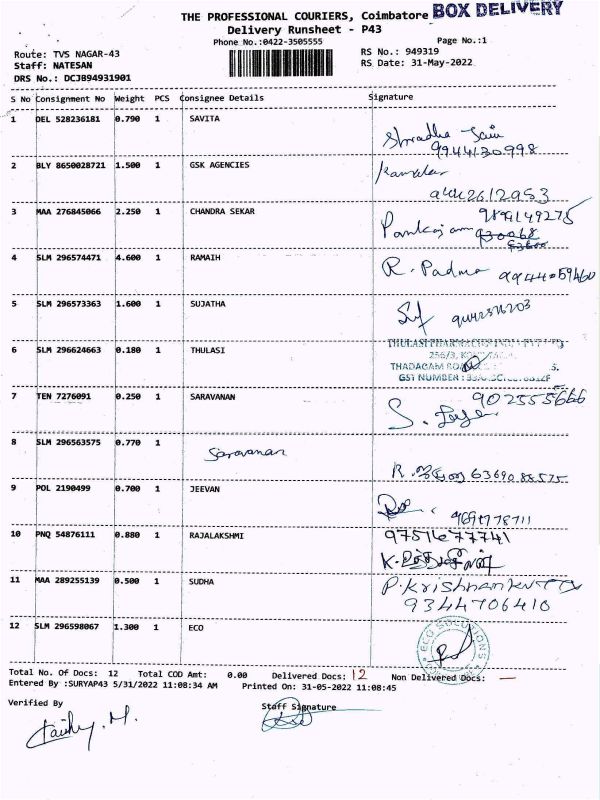 THE PROFESSIONAL COURIERS, Coimbatore BOX DELIVERY
Delivery Runsheet - P43
Phone No.:0422-3505555 Page No.:1
Route: TVS NAGAR-43 RS No.: 949319
Staff: NATESAN RS Date: 31-May-2022
DRS No.: DCJ894931901
S No Consignment No Weight PCS Consignee Details Signature
1 DEL 528236181 0.790 1 SAVITA
Shradha Jain
9944130998
2 BLY 8650028721 1.500 1 GSK AGENCIES
3 MAA 276845066 2.250 1 CHANDRA SEKAR
Pankajam
4 SLM 296574471 4.600 1 RAMAIH
R. Padma
5 SLM 296573363 1.600 1 SUJATHA
6 SLM 296624663 0.180 1 THULASI
256/3,
THADAGAM
GST NUMBER :
7 TEN 7276091 0.250 1 SARAVANAN
902555666
8 SLM 296563575 0.770 1
Saravanan
R. 63690 88575
9 POL 2190499 0.700 1 JEEVAN
10 PNQ 54876111 0.880 1 RAJALAKSHMI
11 MAA 289255139 0.500 1 SUDHA
P. Krishnankutty
9344706410
12 SLM 296598067 1.300 1 ECO
ECO SOLUTIONS
Total No. Of Docs: 12 Total COD Amt: 0.00 Delivered Docs: 12 Non Delivered Docs: —
Entered By :SURYAP43 5/31/2022 11:08:34 AM Printed On: 31-05-2022 11:08:45
Verified By Staff Signature